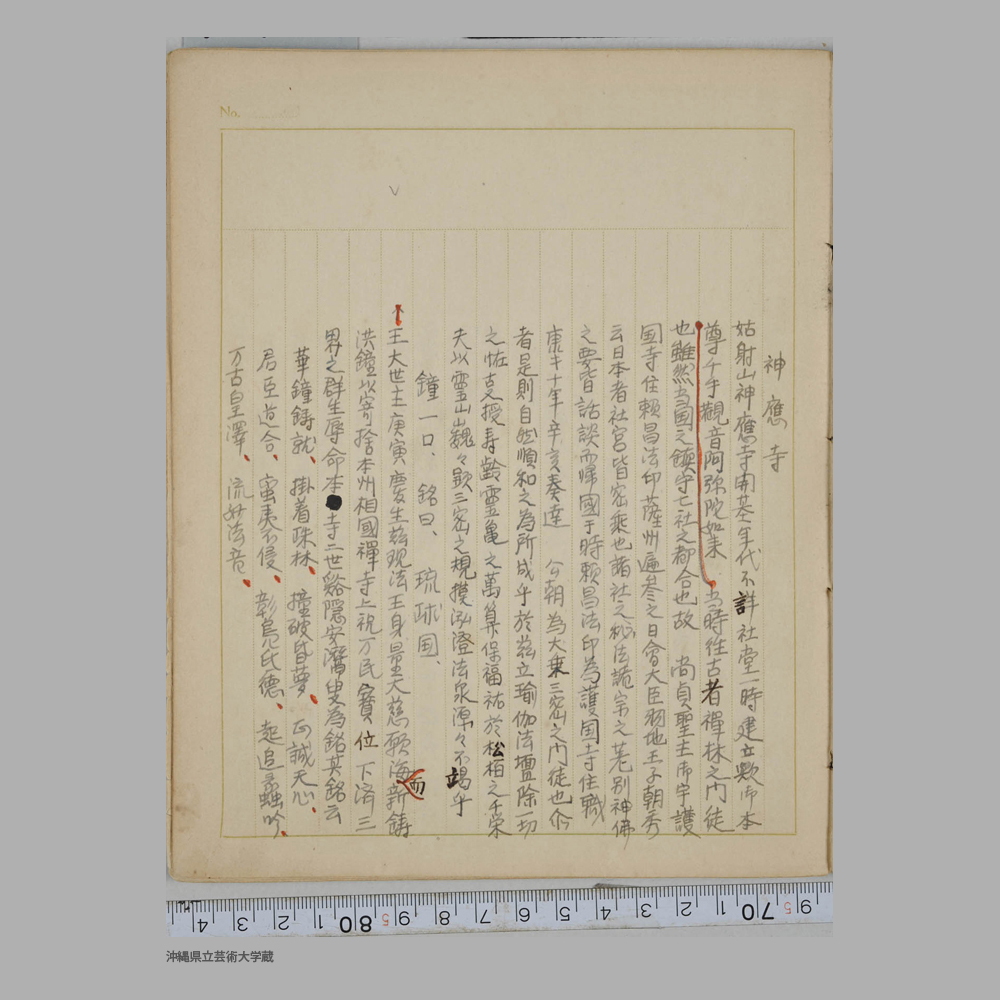 No.
神應寺
姑射山神應寺開基年代不詳社堂一時建立歟御本
尊千手觀音阿弥陀如来 当時往古者禅林之門徒
也雖然当国之鎮守七社之都合也故 尚貞聖主御宇護
国寺住頼昌法印薩州遍参之日會大臣羽地王子朝秀
云日本者社宮皆密乗也諸社之秘法詭宗之 別神佛
之要旨話談而帰國于時頼昌法印為護国寺住職
康熙十年辛亥奏達 公朝為大乗三密之門徒也
者是則自然順和之為所成乎於茲立瑜伽法壇除一切
之恠 授寿齡霊亀之萬算保福祐於松柏之千栄
夫以霊山巍々顕三密之規摸泓澄法泉源々不竭乎
鐘一口、銘曰、琉球国、
王大世主庚寅慶生茲現法王身量大慈願海而新鋳
洪鐘以寄捨本州相國禅寺上祝万民寳位下済三
界之群生辱命本寺二世谿隠安潛叟為銘其銘云
華鐘鋳就、掛着珠林、撞破昏夢、正誠天心、
君臣道合、蛮夷不侵、彰鳧氏徳、起追蠡吟、
万古皇澤、流妙法音、
4 3 2 1 80 9 8 7 6 5 4 3 2 1 70 9
沖縄県立芸術大学蔵